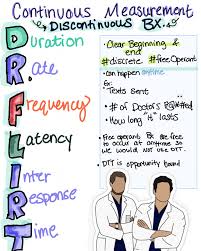 Continuous Measurement
Discontinuous Bx..
Duration
Rate
Frequency
Latency
Inter
Response
Time
• Clear Beginning &
end
#discrete #freeOperant
• can happen anytime
Ex:
Texts sent
• # of Doctor's
• How long "it" lasts
• Free operant Bx are free
to occur at anytime so
we would not use DTT.
• DTT is opportunity bound